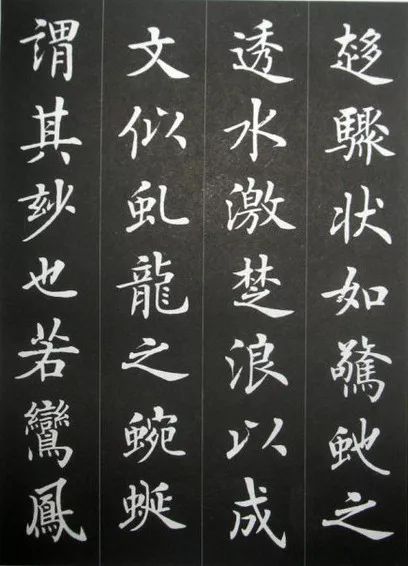 趍驟状如驚虵之
透水激楚浪以成
文似虬龍之蜿蜒
謂其妙也若鸞鳳